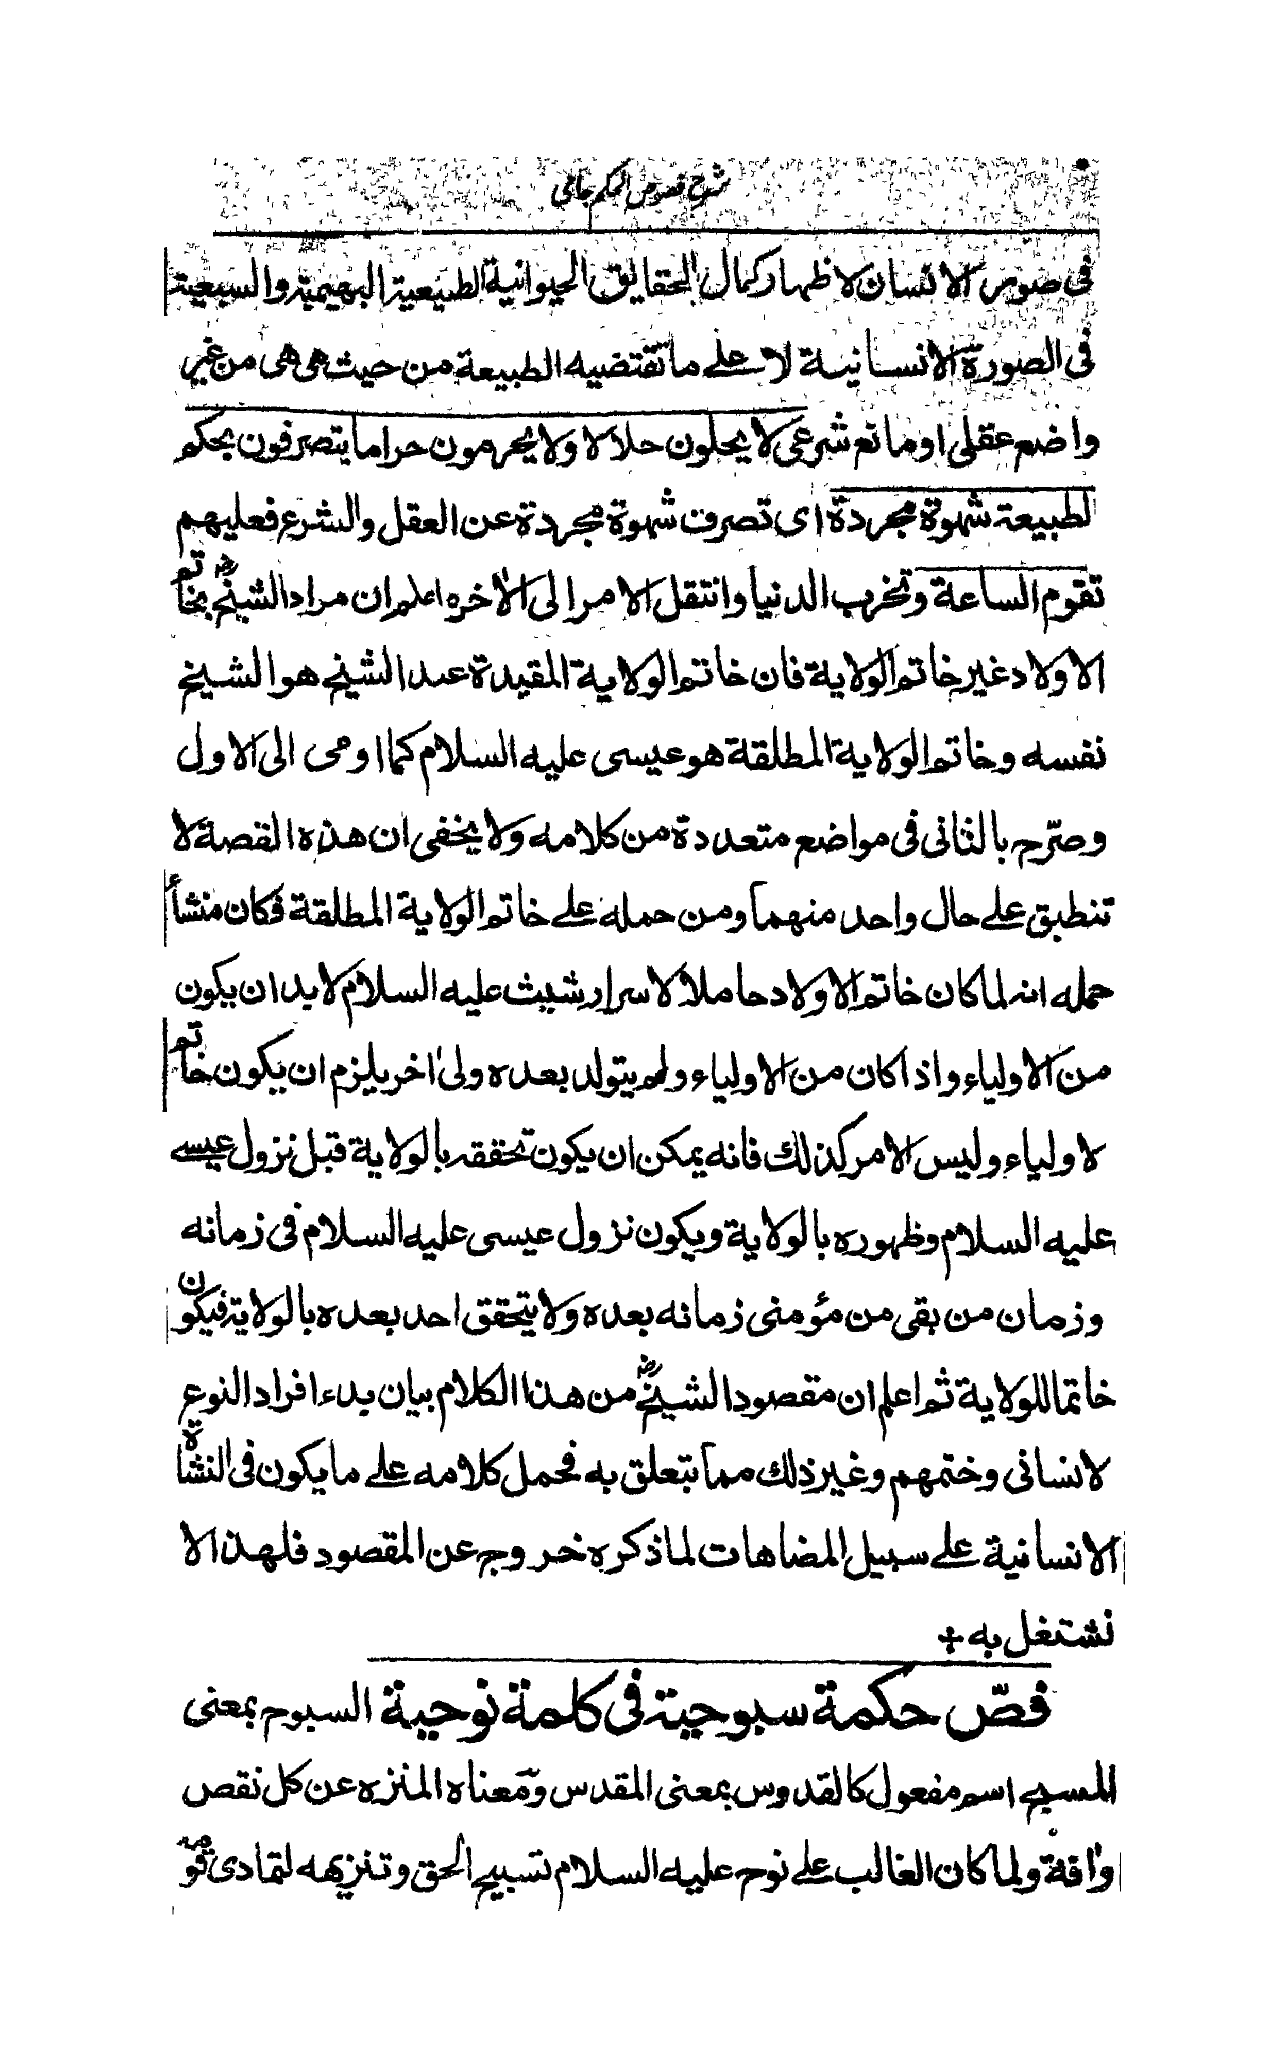 شرح فصوص الحكم جامی
فى صورة الانسان لاظهار كمال الحقايق الحيوانية الطبيعية البهيمية والسبعية
فى الصورة الانسانية لا على ما تقتضيه الطبيعة من حيث هى هى من غير
واضع عقلى او مانع شرعى لا يحلون حلالا ولا يحرمون حراما يتصرفون بحكم
لطبيعة شهوة مجردة اى تصرف شهوة مجردة عن العقل والشرع فعليهم
تقوم الساعة وتخرب الدنيا وانتقل الامر الى الأخره اعلم ان مراد الشيخ رض بخاتم
الاولاد غير خاتم الولاية فان خاتم الولاية المقيدة عند الشيخ هو الشيخ
نفسه وخاتم الولاية المطلقة هو عيسى عليه السلام كما اومى الى الاول
وصرّح بالثانى فى مواضع متعددة من كلامه ولا يخفى ان هذه القصة لا
تنطبق على حال واحد منهما ومن حمله على خاتم الولاية المطلقة فكان منشأ
حمله انه لما كان خاتم الاولاد حاملا لاسرار شيث عليه السلام لابد ان يكون
من الاولياء واذا كان من الاولياء ولم يتولد بعده ولى اخر يلزم ان يكون خاتم
لاولياء وليس الامر كذلك فانه يمكن ان يكون تحققه بالولاية قبل نزول عيسى
عليه السلام وظهوره بالولاية ويكون نزول عيسى عليه السلام فى زمانه
وزمان من بقى من مؤمنى زمانه بعده ولا يتحقق احد بعده بالولاية فيكون
خاتما للولاية ثم اعلم ان مقصود الشيخ رض من هذا الكلام بيان بدء افراد النوع
لانسانى وختمهم وغير ذلك مما يتعلق به فحمل كلامه على ما يكون فى النشاة
الانسانية على سبيل المضاهات لما ذكره خروج عن المقصود فلهذا لا
نشتغل به +
فصّ حكمة سبوحية فى كلمة نوحية السبوح بمعنى
المسبح اسم مفعول كالقدوس بمعنى المقدس ومعناه المنزه عن كل نقص
وأفة ولما كان الغالب على نوح عليه السلام تسبيح الحق وتنزيهه لتمادى قومه